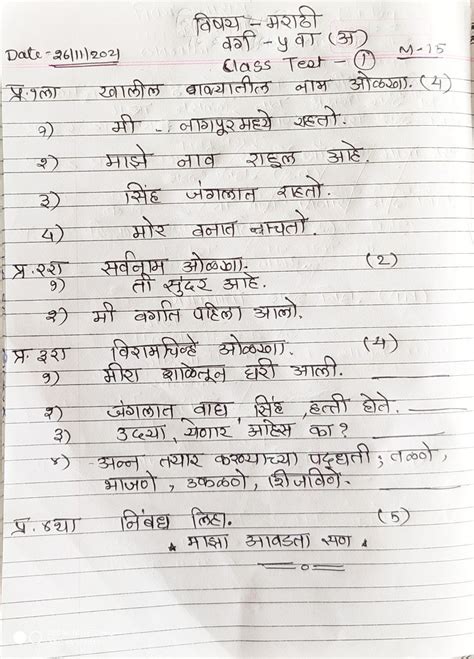 विषय - मराठी
वर्ग - ५ वा (अ)
Date - 26/11/2021
Class Test - 1
M-15
प्र.१ला खालील वाक्यातील नाम ओळखा. (4)
१) मी नागपूरमध्ये राहतो.
२) माझे नाव राहूल आहे.
३) सिंह जंगलात राहतो.
4) मोर वनात नाचतो.
प्र.२रा सर्वनाम ओळखा. (2)
१) ती सुंदर आहे.
२) मी वर्गात पहिला आलो.
प्र.३रा विरामचिन्हे ओळखा. (4)
१) मीरा शाळेतून घरी आली.
२) जंगलात वाघ, सिंह, हत्ती होते.
३) उदया, येणार आहेस का?
४) अन्न तयार करण्याच्या पद्धती; तळणे,
भाजणे, उकळणे, शिजविणे.
प्र.४था निबंध लिहा. (5)
* माझा आवडता सण *